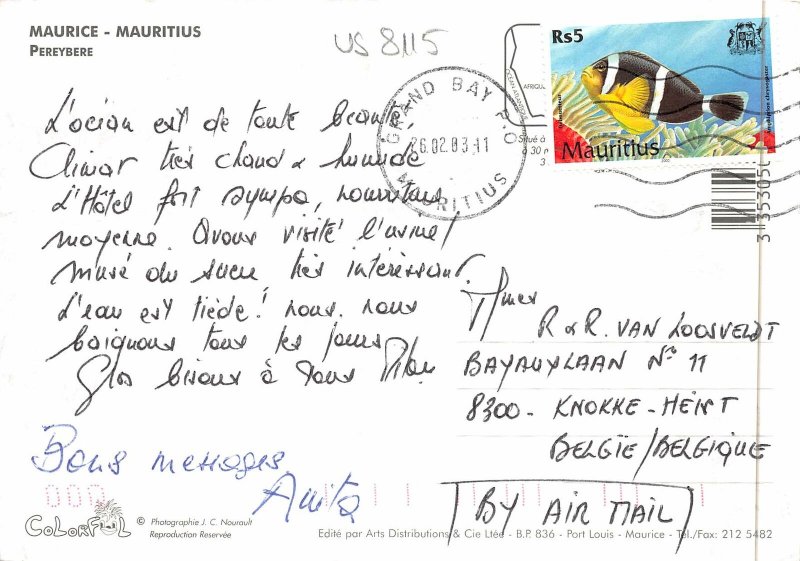 MAURICE - MAURITIUS
PEREYBERE
US 8115
Rs5
Mauritius
GRAND BAY P.O
26.02.03.11
MAURITIUS
L'océan est de toute beauté,
Climat très chaud & humide
L'Hôtel fort sympa, nourriture
moyenne. Avons visité l'usine/
musé du sucre, très intéressant.
L'eau est tiède! nous nous
baignons tous les jours
Gros bisous à vous
Bons messages
Anita
Mmes
R & R. VAN LOOSVELDT
BAYAUXLAAN N° 11
8300 - KNOKKE-HEIST
BELGIE/BELGIQUE
BY AIR MAIL
COLORFUL
© Photographie J. C. Nourault
Reproduction Reservée
Edité par Arts Distributions & Cie Ltée - B.P. 836 - Port Louis - Maurice - Tel./Fax: 212 5482